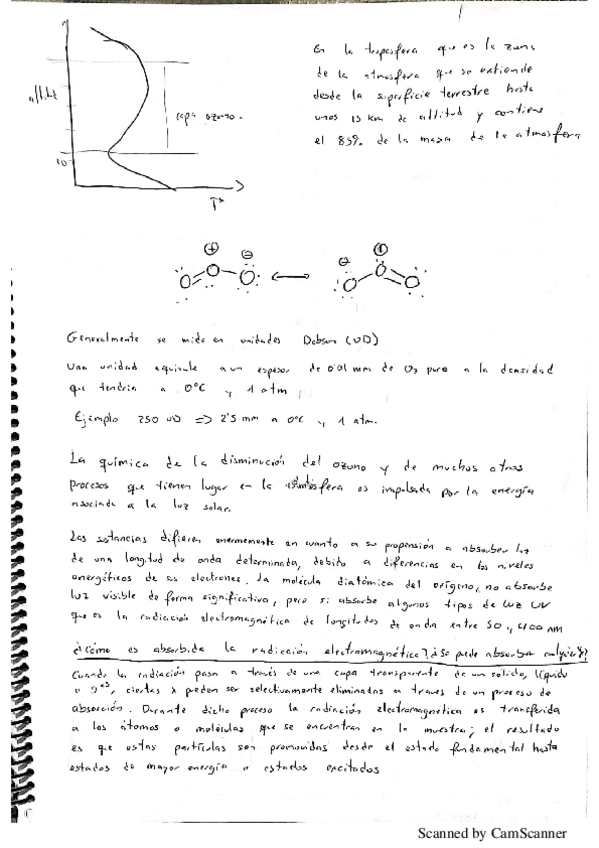 1
altitud
10
capa ozono.
Tª
En la troposfera que es la zona
de la atmosfera que se extiende
desde la superficie terrestre hasta
unos 15 km de altitud y contiene
el 85% de la masa de la atmosfera
Generalmente se mide en unidades Dobson (UD)
Una unidad equivale a un espesor de 0'01 mm de O3 puro a la densidad
que tendria a 0ºC y 1 atm
Ejemplo 250 UD => 2'5 mm a 0ºC y 1 atm.
La química de la disminución del ozono y de muchos otros
procesos que tienen lugar en la es impulsada por la energía
asociada a la luz solar.
Las sustancias difieren enormemente en cuanto a su propensión a absorber luz
de una longitud de onda determinada, debido a diferencias en los niveles
energéticos de los electrones. La molécula diatómica del oxígeno, no absorbe
luz visible de forma significativa, pero si absorbe algunos tipos de luz UV
que es la radiación electromagnética de longitudes de onda entre 50 y 400 nm
¿Cómo es absorbida la radiación electromagnética? ¿Se puede absorber cualquier?
Cuando la radiación pasa a través de una capa transparente de un solido, líquido
o gas, ciertas λ pueden ser selectivamente eliminadas a traves de un proceso de
absorción. Durante dicho proceso la radiación electromagnetica es transferida
a los átomos o moléculas que se encuentran en la muestra; el resultado
es que estas partículas son promovidas desde el estado fundamental hasta
estados de mayor energía o estados excitados
Scanned by CamScanner